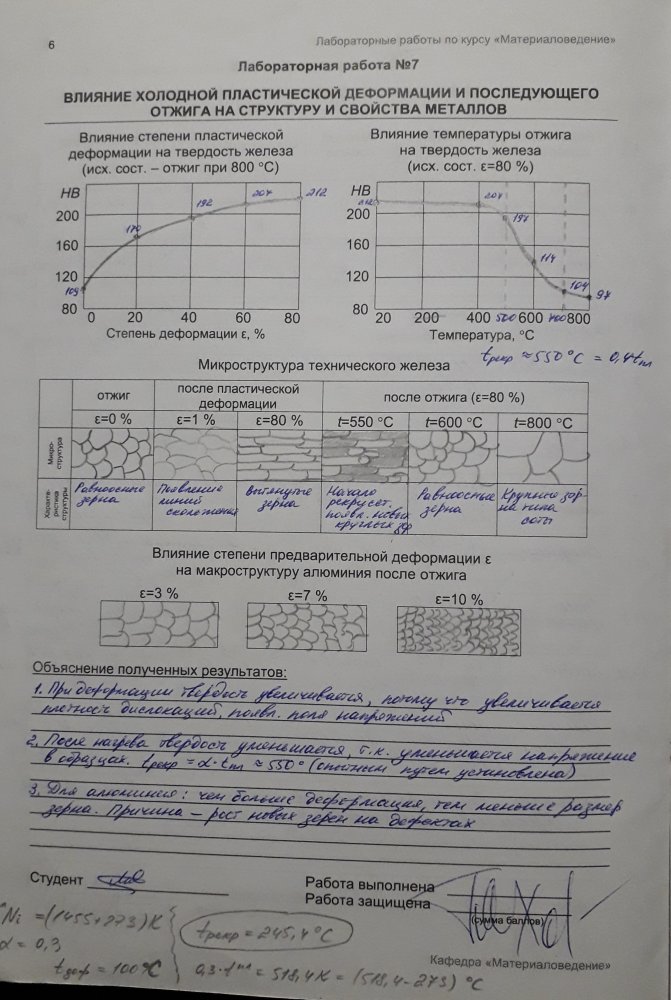 6
Лабораторные работы по курсу «Материаловедение»
Лабораторная работа №7
ВЛИЯНИЕ ХОЛОДНОЙ ПЛАСТИЧЕСКОЙ ДЕФОРМАЦИИ И ПОСЛЕДУЮЩЕГО
ОТЖИГА НА СТРУКТУРУ И СВОЙСТВА МЕТАЛЛОВ
Влияние степени пластической
деформации на твердость железа
(исх. сост. – отжиг при 800 °С)
HB
200
160
120
80
109
170
192
207
212
0 20 40 60 80
Степень деформации ε, %
Влияние температуры отжига
на твердость железа
(исх. сост. ε=80 %)
HB
200
160
120
80
212
207
197
114
104
97
20 200 400 500 600 700 800
Температура, °С
tрекр ≈ 550 °C = 0,4tпл
Микроструктура технического железа
отжиг
после пластической
деформации
после отжига (ε=80 %)
ε=0 % ε=1 % ε=80 % t=550 °С t=600 °С t=800 °С
Микро-
структура
Характе-
ристика
структуры
Равноосные
зерна
Появление
линий
скольжения
Вытянутые
зерна
Начало
рекрист.
появл. новых
круглых
Равноосные
зерна
Крупные зер-
на типа
соты
Влияние степени предварительной деформации ε
на макроструктуру алюминия после отжига
ε=3 % ε=7 % ε=10 %
Объяснение полученных результатов:
1. При деформации твердость увеличивается, потому что увеличивается
плотность дислокаций, появл. поля напряжений
2. После нагрева твердость уменьшается, т.к. уменьшается напряжение
в образцах. tрекр = α·tпл ≈ 550° (опытным путем установлена)
3. Для алюминия: чем больше деформация, тем меньше размер
зерна. Причина – рост новых зерен на дефектах
Студент
Работа выполнена
Работа защищена
(сумма баллов)
Ni = (1455+273)K
α = 0,3
tдеф = 100°C
tрекр = 245,4°C
0,3·tпл = 518,4K = (518,4-273) °C
Кафедра «Материаловедение»